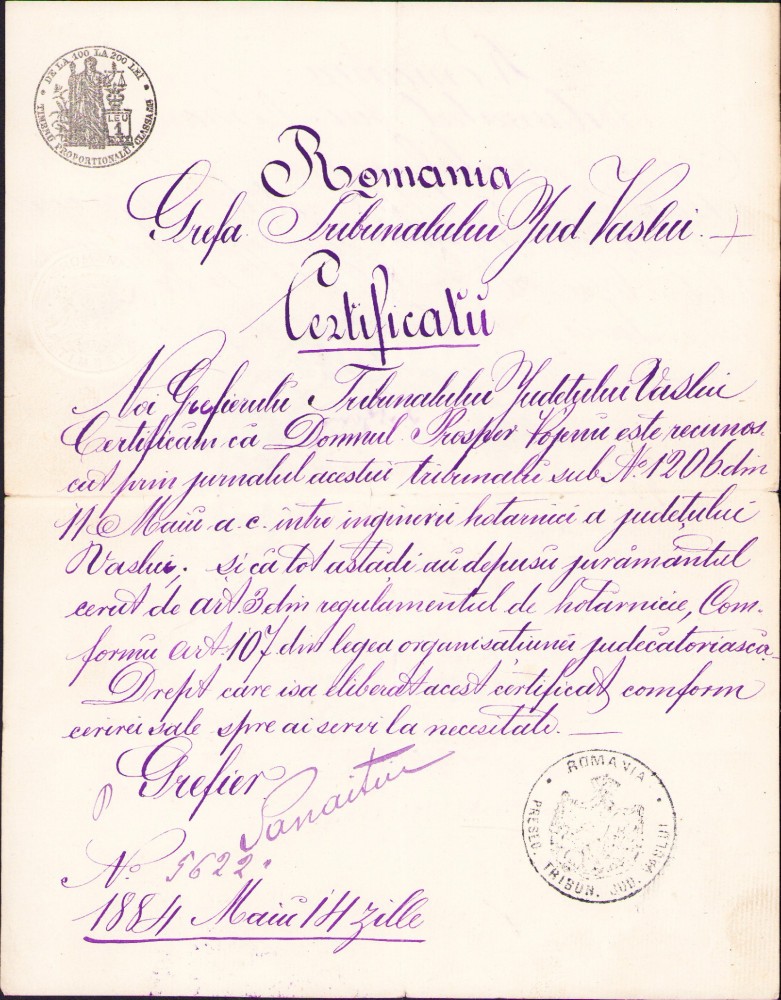 DE LA 100 LA 200 LEI
LEU
1
TIMBRU PROPORTIONALU CLASSA
Romania
Grefa Tribunalului Jud Vaslui.
Certificatŭ
Noi Grefierulu Tribunalului Judeţului Vaslui
Certificăm că Domnul Prosper este recunos-
cut prin jurnalul acestui tribunalŭ sub No. 1206 din
11 Maiŭ a. c. intre ingineri hotarnici a judeţului
Vaslui, şi că tot astadi au depusu jurământul
cerut de art 3 din regulamentul de hotarnicie, Com-
formŭ art 107 din legea organisatiunei judecătoriască
Drept care isa eliberat acest certificat comform
cerirei sale spre ai servi la necesitate.
Grefier
No. 5622.
1884 Maiŭ 14 zille
ROMANIA
PRESED. TRIBUN. JUD. VASLUI